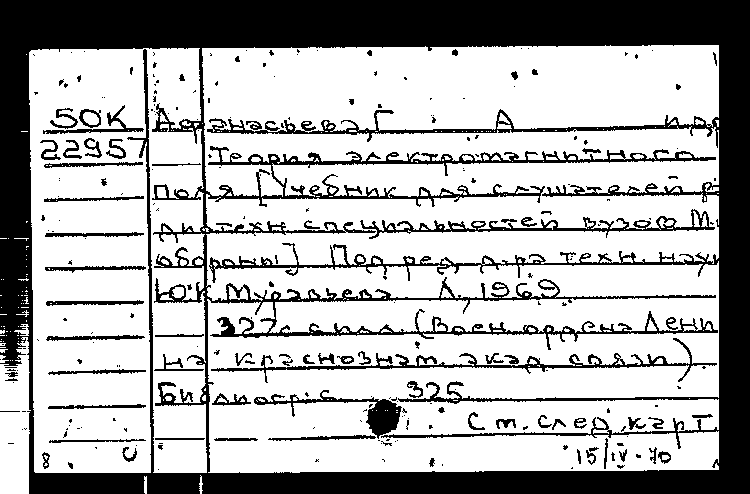 50К Афанасьева, Г А и др
22957 Теория электромагнитного
поля [Учебник для слушателей ра
диотехн. специальностей вузов М-ва
обороны] Под ред. д-ра техн. наук
Ю.К. Муравьева Л., 1969.
327 с. с илл. (Воен. ордена Лени
на краснознам. акад. связи).
Библиогр: с 325
См. след. карт
8 15/IV-70